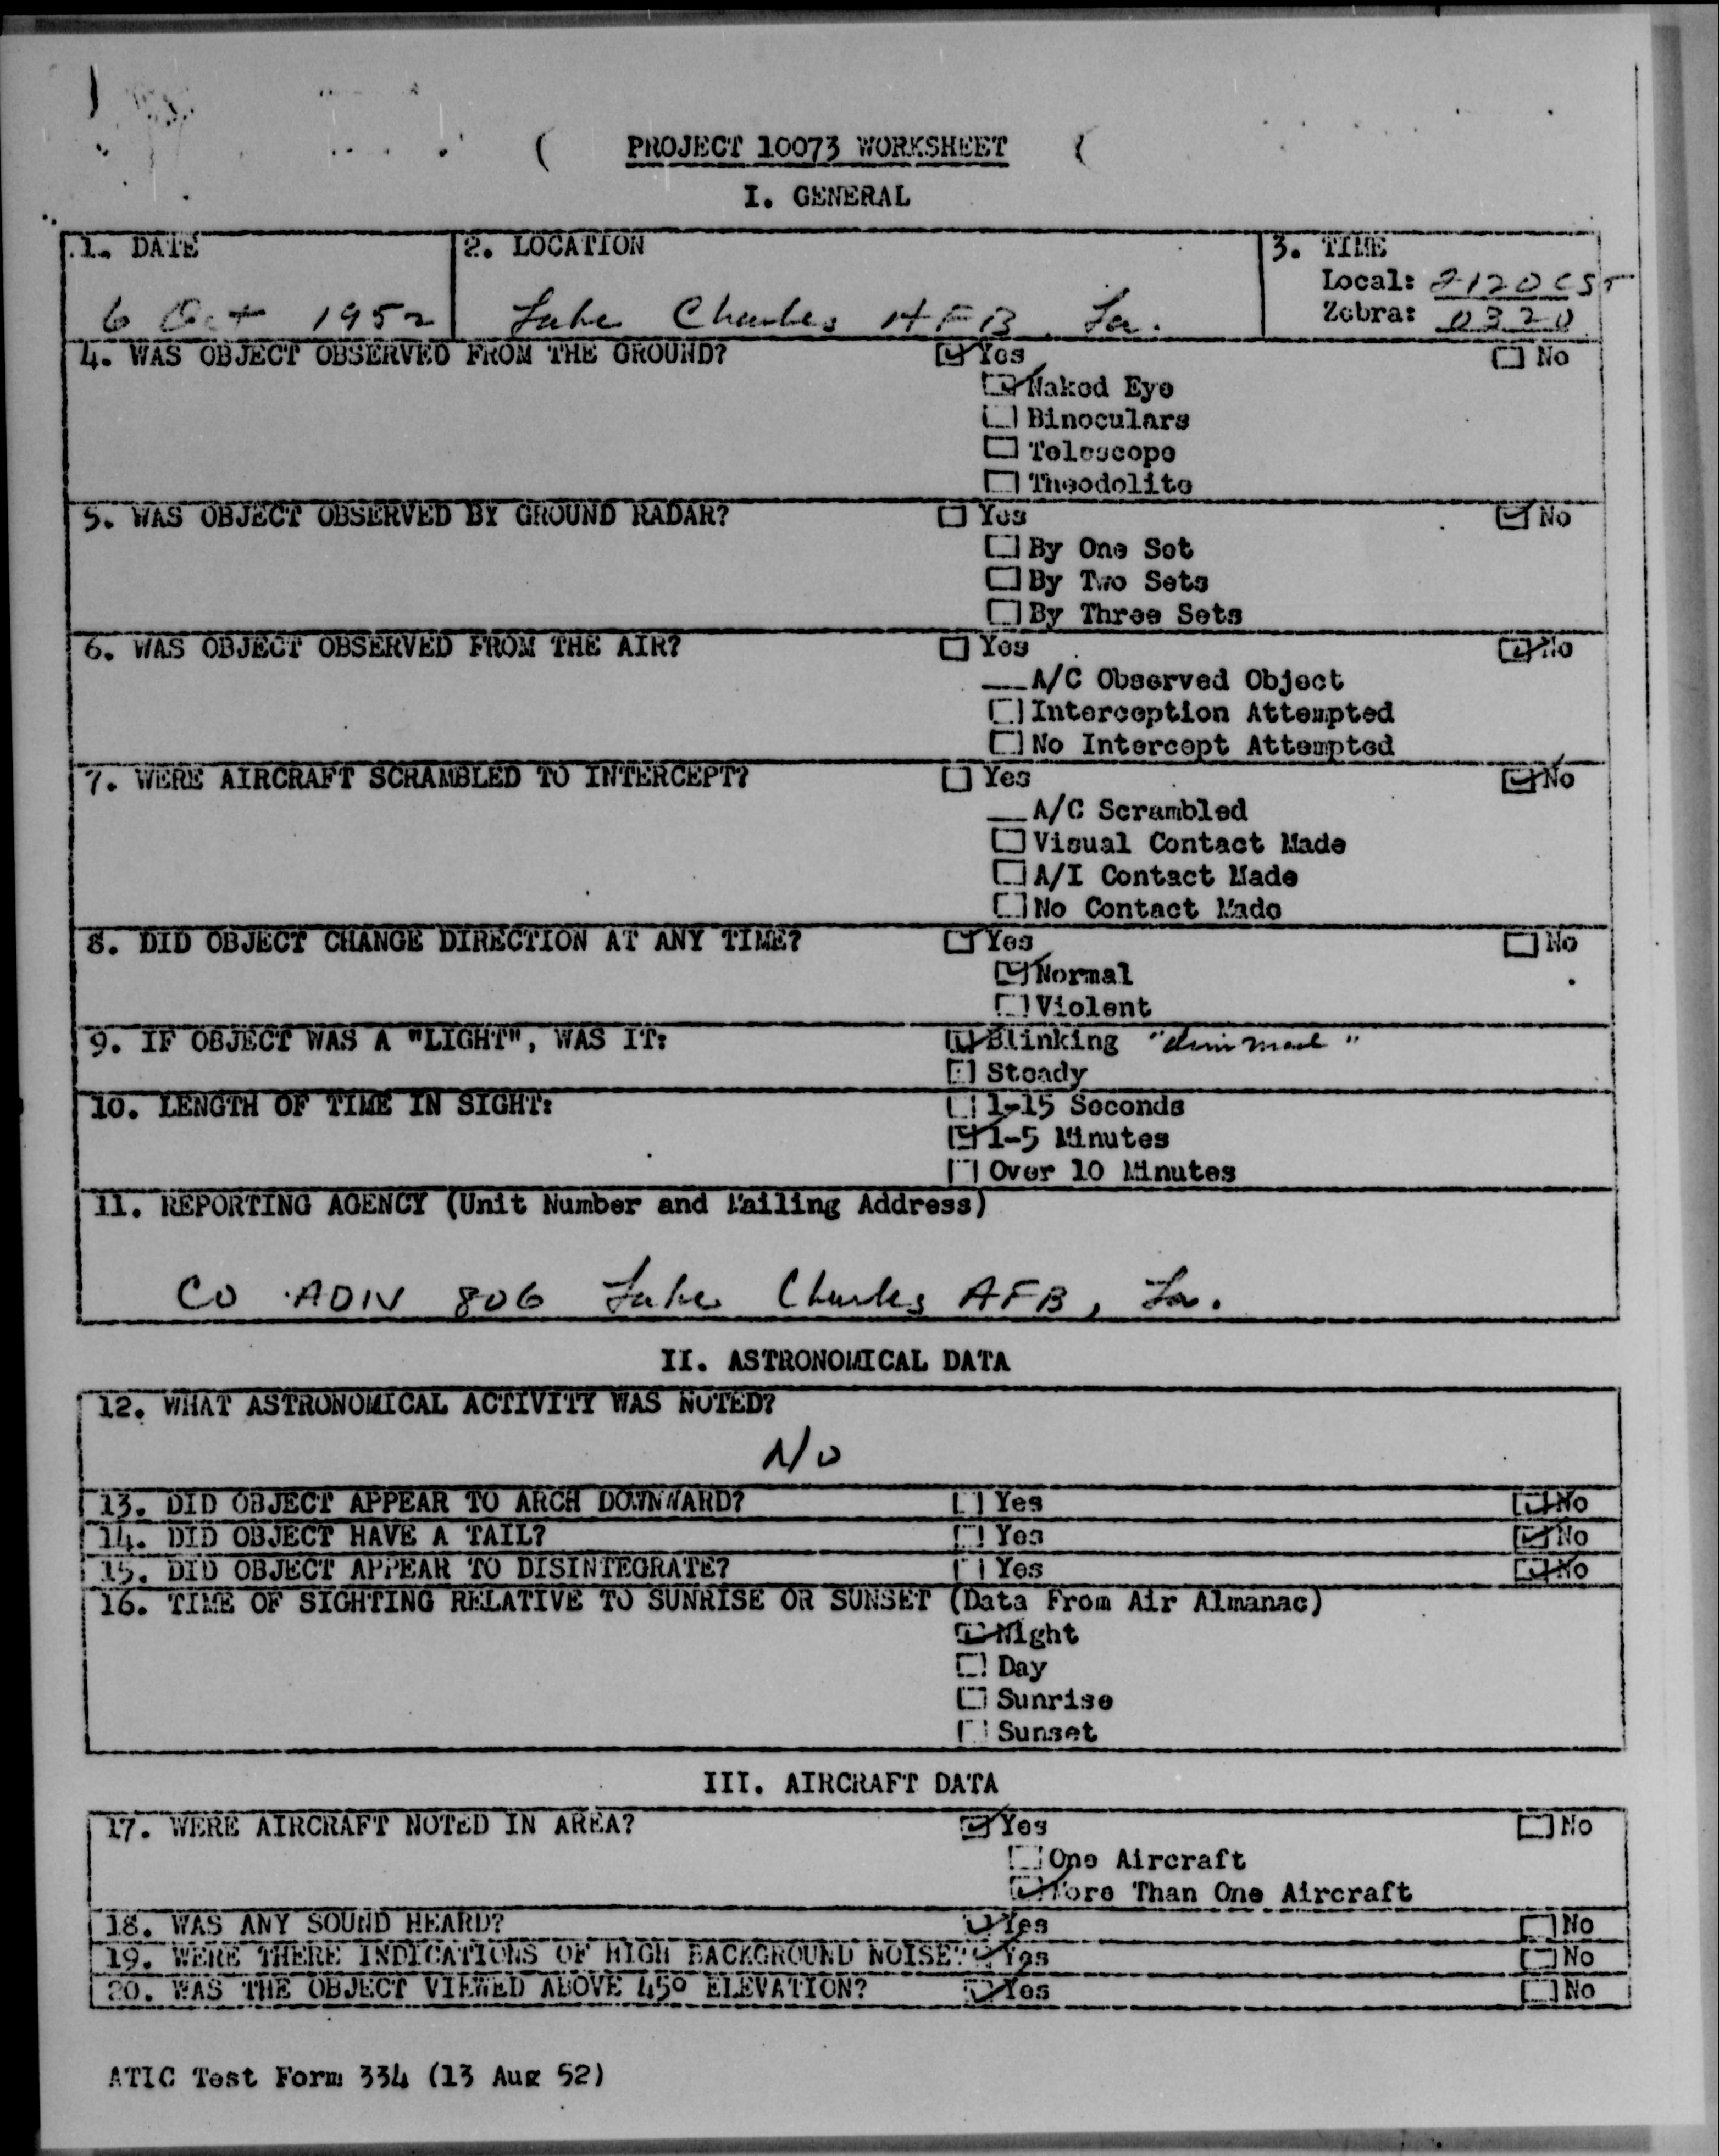 PROJECT 10073 WORKSHEET
I. GENERAL
1. DATE
6 Oct 1952
2. LOCATION
Lake Charles AFB, La.
3. TIME
Local: 2120 CST
Zebra: 0320
4. WAS OBJECT OBSERVED FROM THE GROUND? Yes No
Naked Eye
Binoculars
Telescope
Theodolite
5. WAS OBJECT OBSERVED BY GROUND RADAR? Yes No
By One Set
By Two Sets
By Three Sets
6. WAS OBJECT OBSERVED FROM THE AIR? Yes No
A/C Observed Object
Interception Attempted
No Intercept Attempted
7. WERE AIRCRAFT SCRAMBLED TO INTERCEPT? Yes No
A/C Scrambled
Visual Contact Made
A/I Contact Made
No Contact Made
8. DID OBJECT CHANGE DIRECTION AT ANY TIME? Yes No
Normal
Violent
9. IF OBJECT WAS A "LIGHT", WAS IT: Blinking
Steady
10. LENGTH OF TIME IN SIGHT: 1-15 Seconds
1-5 Minutes
Over 10 Minutes
11. REPORTING AGENCY (Unit Number and Mailing Address)
CO ADIV 806 Lake Charles AFB, La.
II. ASTRONOMICAL DATA
12. WHAT ASTRONOMICAL ACTIVITY WAS NOTED?
No
13. DID OBJECT APPEAR TO ARCH DOWNWARD? Yes No
14. DID OBJECT HAVE A TAIL? Yes No
15. DID OBJECT APPEAR TO DISINTEGRATE? Yes No
16. TIME OF SIGHTING RELATIVE TO SUNRISE OR SUNSET (Data From Air Almanac)
Night
Day
Sunrise
Sunset
III. AIRCRAFT DATA
17. WERE AIRCRAFT NOTED IN AREA? Yes No
One Aircraft
More Than One Aircraft
18. WAS ANY SOUND HEARD? Yes No
19. WERE THERE INDICATIONS OF HIGH BACKGROUND NOISE? Yes No
20. WAS THE OBJECT VIEWED ABOVE 45° ELEVATION? Yes No
ATIC Test Form 334 (13 Aug 52)